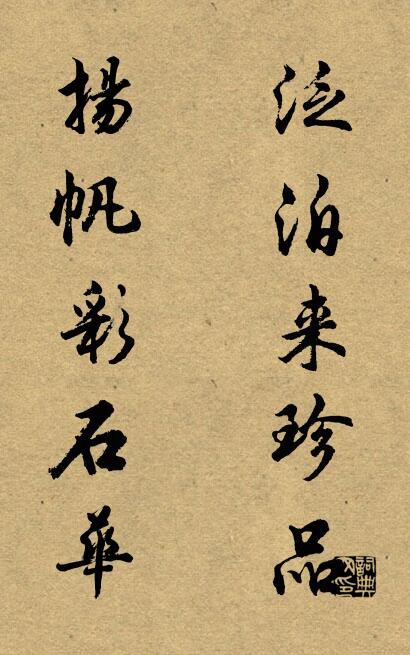 泛泊来珍品
揚帆彩石華
詞典